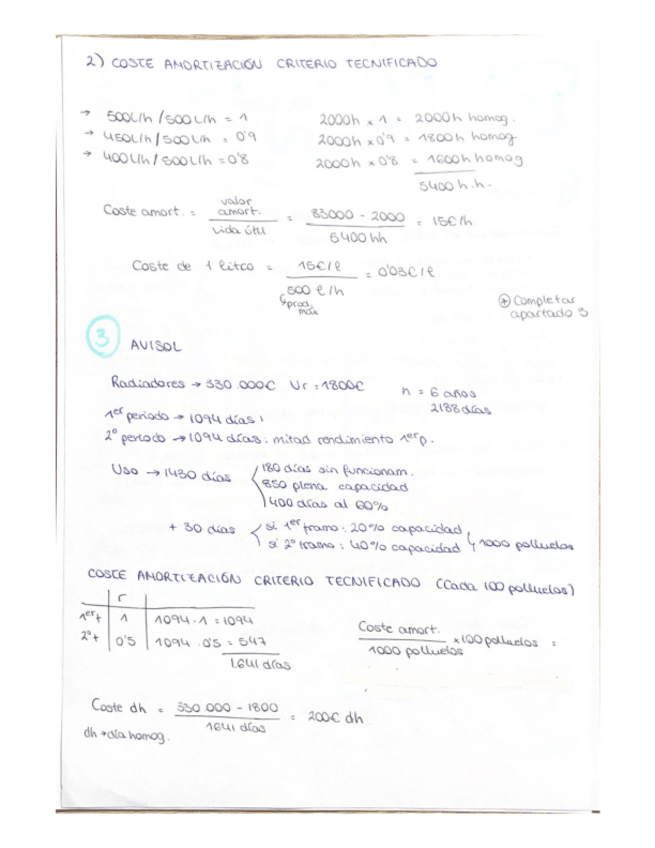 2) COSTE AMORTIZACIÓN CRITERIO TECNIFICADO
→ 500L/h / 500L/h = 1    2000h x 1 = 2000h homog.
→ 450L/h / 500L/h = 0'9    2000h x 0'9 = 1800h homog
→ 400L/h / 500L/h = 0'8    2000h x 0'8 = 1600h homog
5400 h.h.
Coste amort. = valor amort. / vida útil = 83000 - 2000 / 5400 hh = 15€/h
Coste de 1 litro = 15€/l / 500 l/h = 0'03€/l
prod. máx
* Completar apartado 3
3 AVISOL
Radiadores → 330.000€ Vr = 1800€    n = 6 años
2188 días
1er periodo → 1094 días
2º periodo → 1094 días: mitad rendimiento 1er p.
Uso → 1430 días
180 días sin funcionam.
850 plena capacidad
400 días al 60%
+ 30 días
si 1er tramo: 20% capacidad
si 2º tramo: 40% capacidad
1000 polluelos
COSTE AMORTIZACIÓN CRITERIO TECNIFICADO (Cada 100 polluelos)
r
1er t 1 1094·1 = 1094
2º t 0'5 1094·0'5 = 547
1.641 días
Coste amort. / 1000 polluelos x 100 polluelos =
Coste dh = 330.000 - 1800 / 1641 días = 200€ dh
dh → día homog.